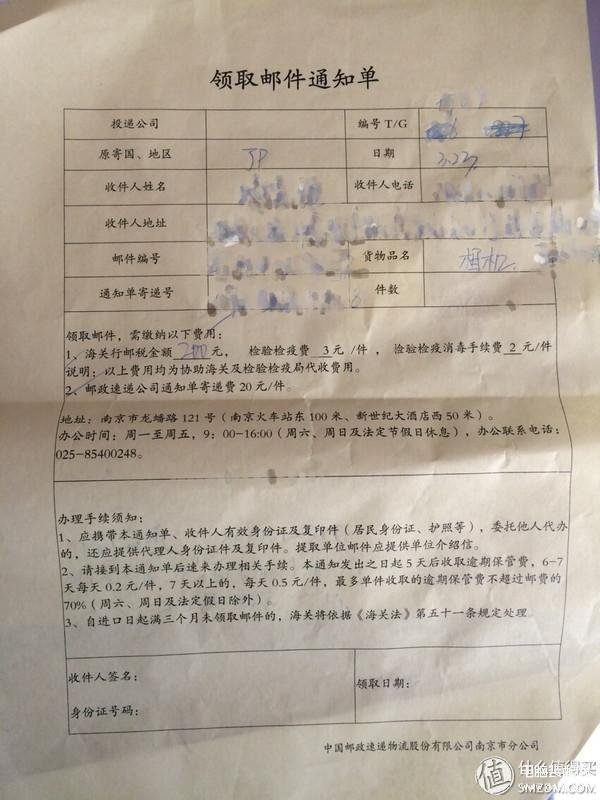 领取邮件通知单
投递公司 编号 T/G
原寄国、地区 JP 日期 3.23
收件人姓名 收件人电话
收件人地址
邮件编号 货物品名 相机
通知单寄递号 件数
领取邮件,需缴纳以下费用:
1、海关行邮税金额 200 元, 检验检疫费 3 元 /件 , 检验检疫消毒手续费 2 元/件
说明:以上费用均为协助海关及检验检疫局代收费用。
2、邮政速递公司通知单寄递费 20 元/件。
地址:南京市龙蟠路 121 号(南京火车站东 100 米、新世纪大酒店西 50 米)。
办公时间:周一至周五,9:00-16:00(周六、周日及法定节假日休息),办公联系电话:
025-85400248。
办理手续须知:
1、应携带本通知单、收件人有效身份证及复印件(居民身份证、护照等),委托他人代办
的,还应提供代理人身份证件及复印件。提取单位邮件应提供单位介绍信。
2、请接到本通知单后速来办理相关手续。本通知发出之日起 5 天后收取逾期保管费,6-7
天每天 0.2 元/件,7 天以上的,每天 0.5 元/件,最多单件收取的逾期保管费不超过邮费的
70%(周六、周日及法定假日除外)。
3、自进口日起满三个月未领取邮件的,海关将依据《海关法》第五十一条规定处理
收件人签名: 领取日期:
身份证号码:
中国邮政速递物流股份有限公司南京市分公司
值 什么值得买